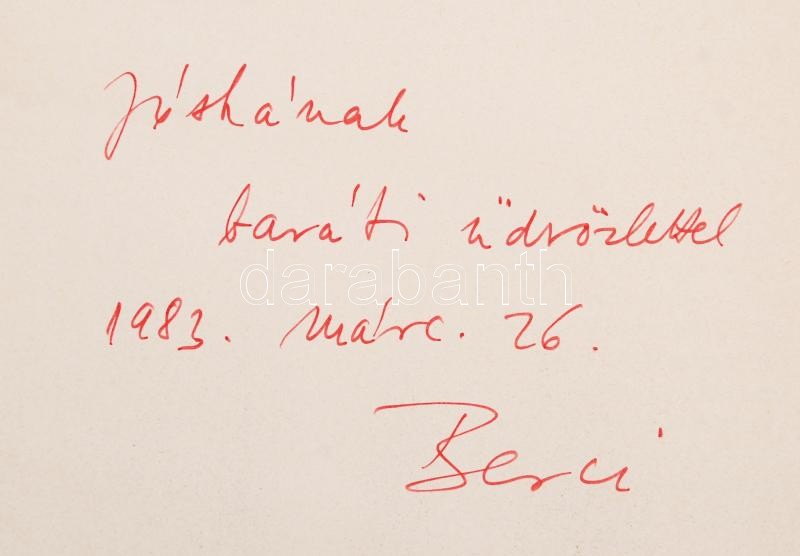 Jóskának
baráti üdvözlettel
darabanth
1983. márc. 26.
Berci